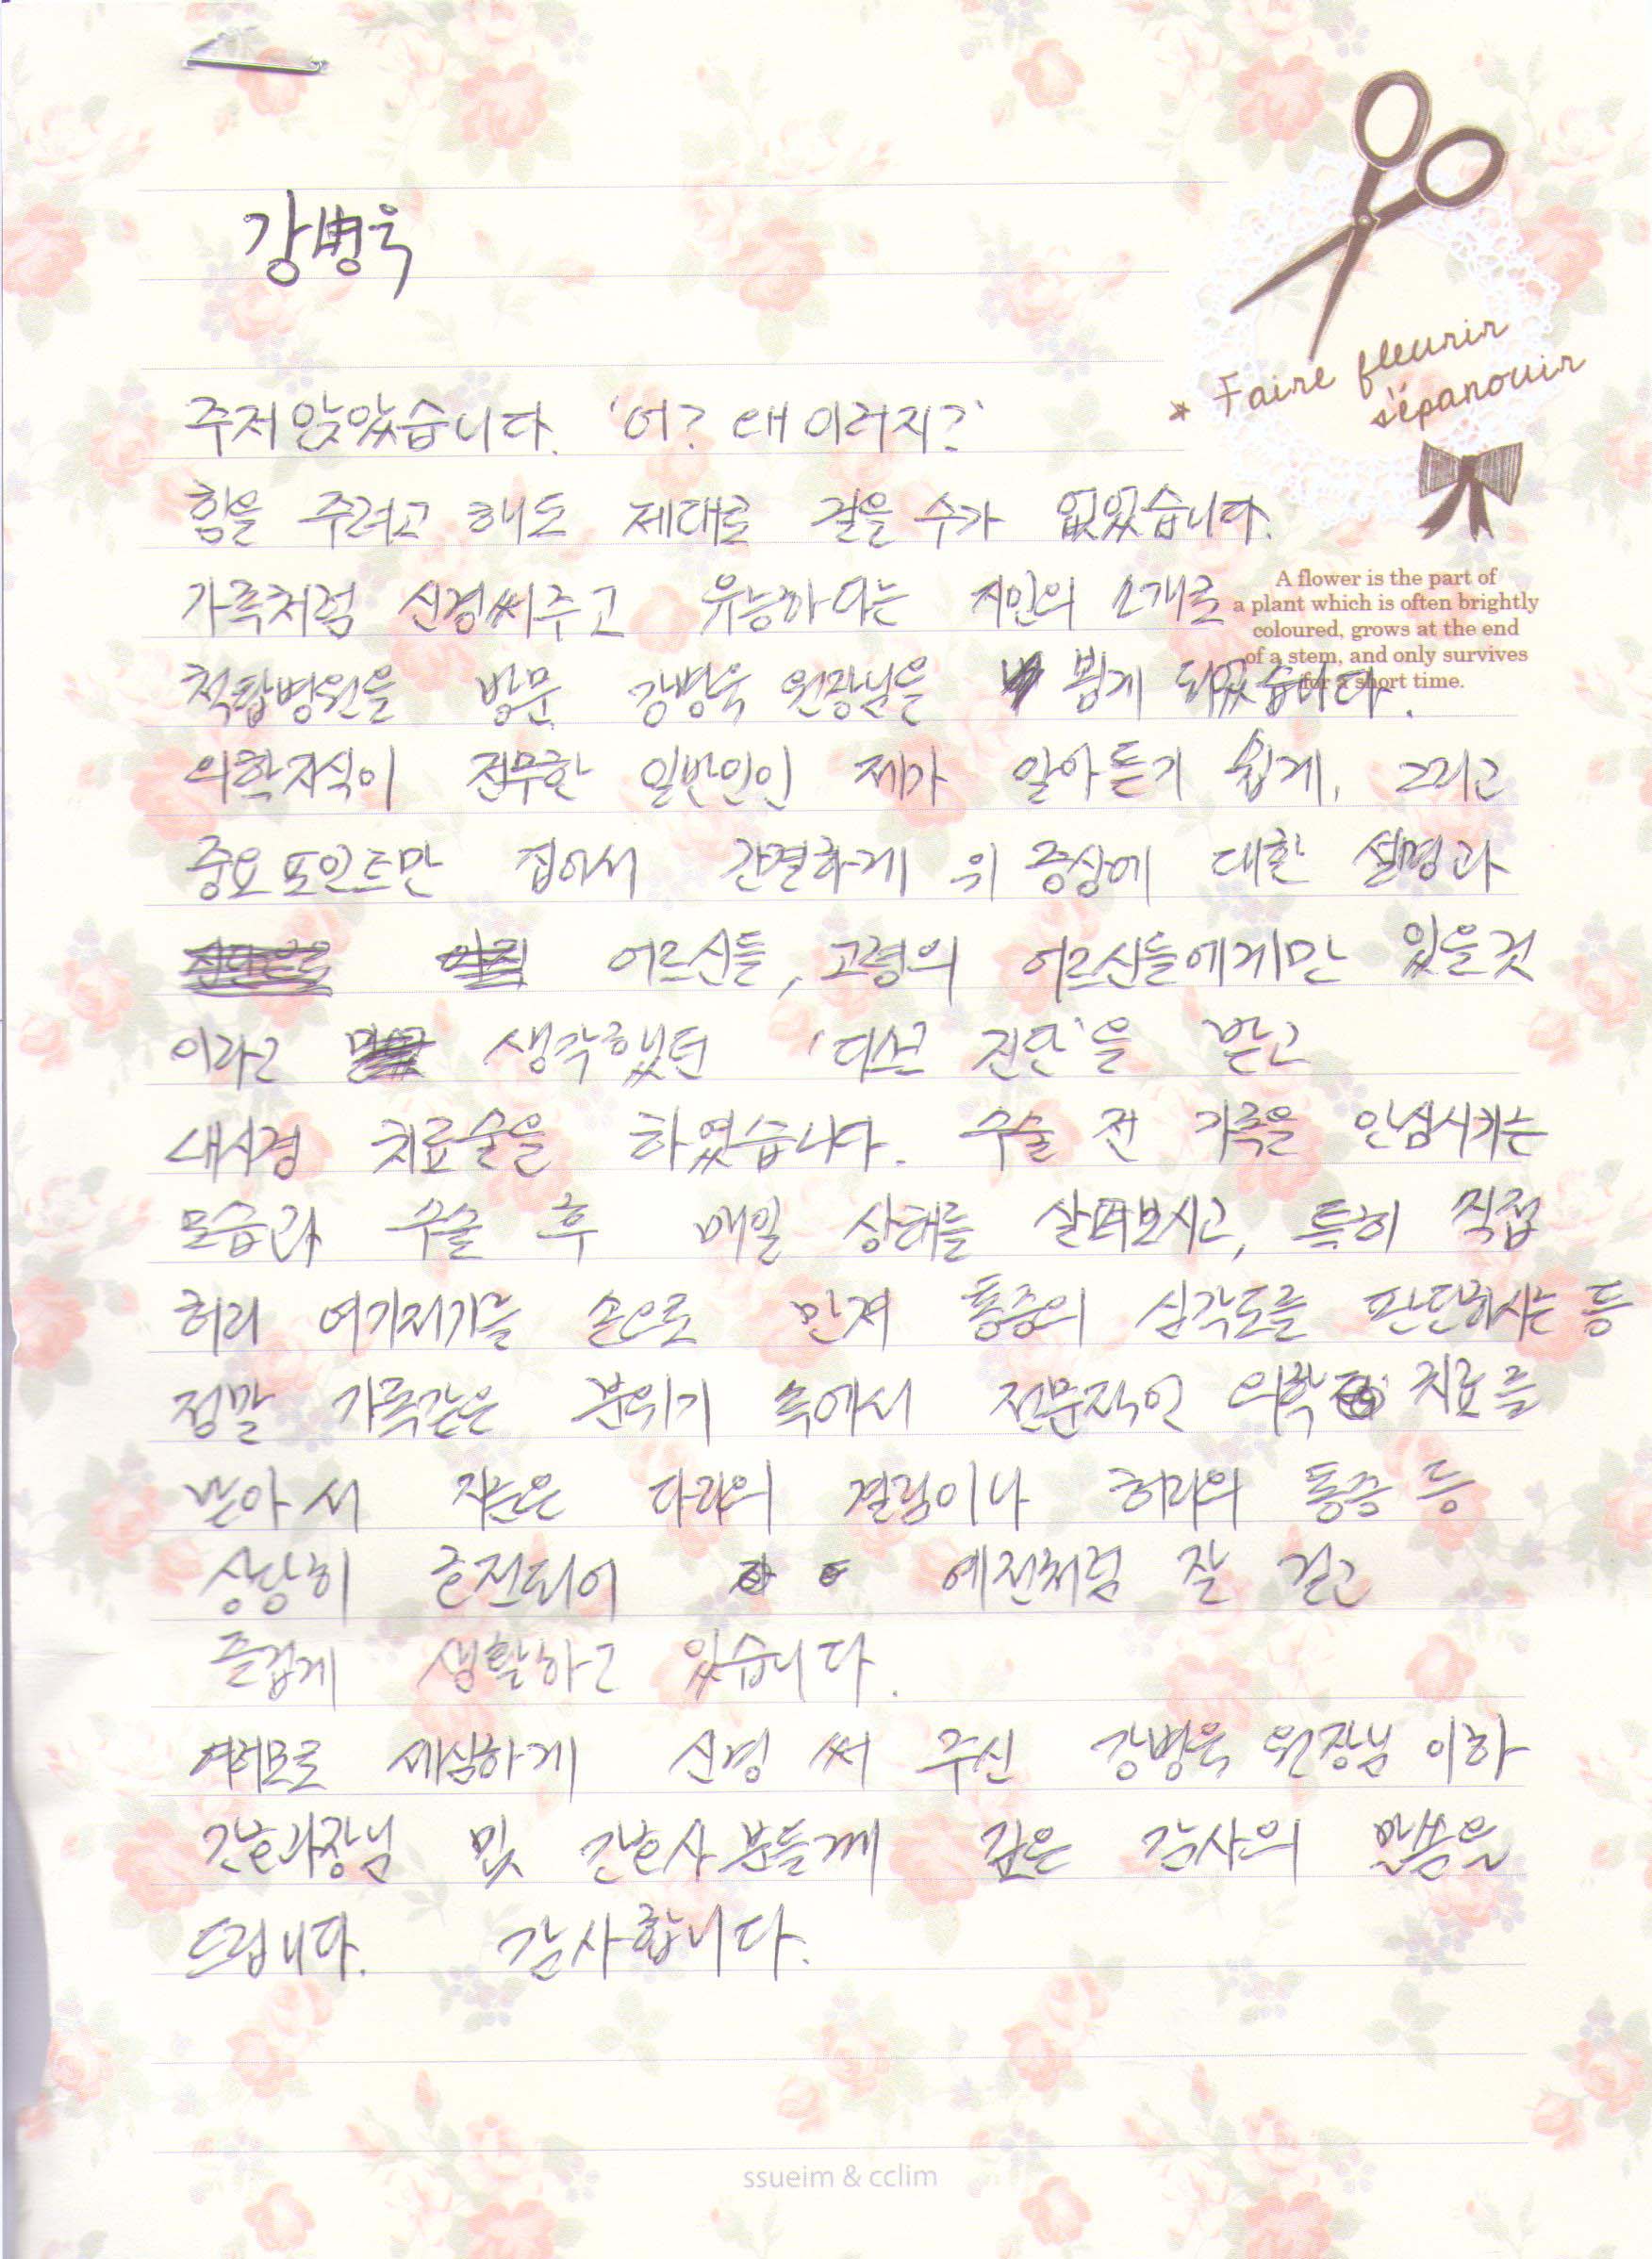 강병욱
* Faire fleurir
s'épanouir
주저앉았습니다. '어? 왜 이러지?'
힘을 주려고 해도 제대로 걸을 수가 없었습니다.
가족처럼 신경써주고 유능하다는 지인의 소개로
A flower is the part of
a plant which is often brightly
coloured, grows at the end
of a stem, and only survives
for a short time.
척탑병원을 방문, 강병욱 원장님을 뵙게 되었습니다.
의학지식이 전무한 일반인인 제가 알아듣기 쉽게, 그리고
중요포인트만 집어서 간결하게 위 증상에 대한 설명과
어르신들, 고령의 어르신들에게만 있을것
이라고 생각했던 '디스크 진단'을 받고
내시경 치료술을 하였습니다. 수술 전 가족을 안심시키는
모습과 수술 후 매일 상태를 살펴보시고, 특히 직접
허리 여기저기를 손으로 만져 통증의 심각도를 판단하시는 등
정말 가족같은 분위기 속에서 전문적인 의학 치료를
받아서 지금은 다리의 결림이나 허리의 통증 등
상당히 호전되어 예전처럼 잘 걷고
즐겁게 생활하고 있습니다.
여러모로 세심하게 신경 써 주신 강병욱 원장님 이하
간호과장님 및 간호사분들께 깊은 감사의 말씀을
드립니다. 감사합니다.
ssueim & cclim